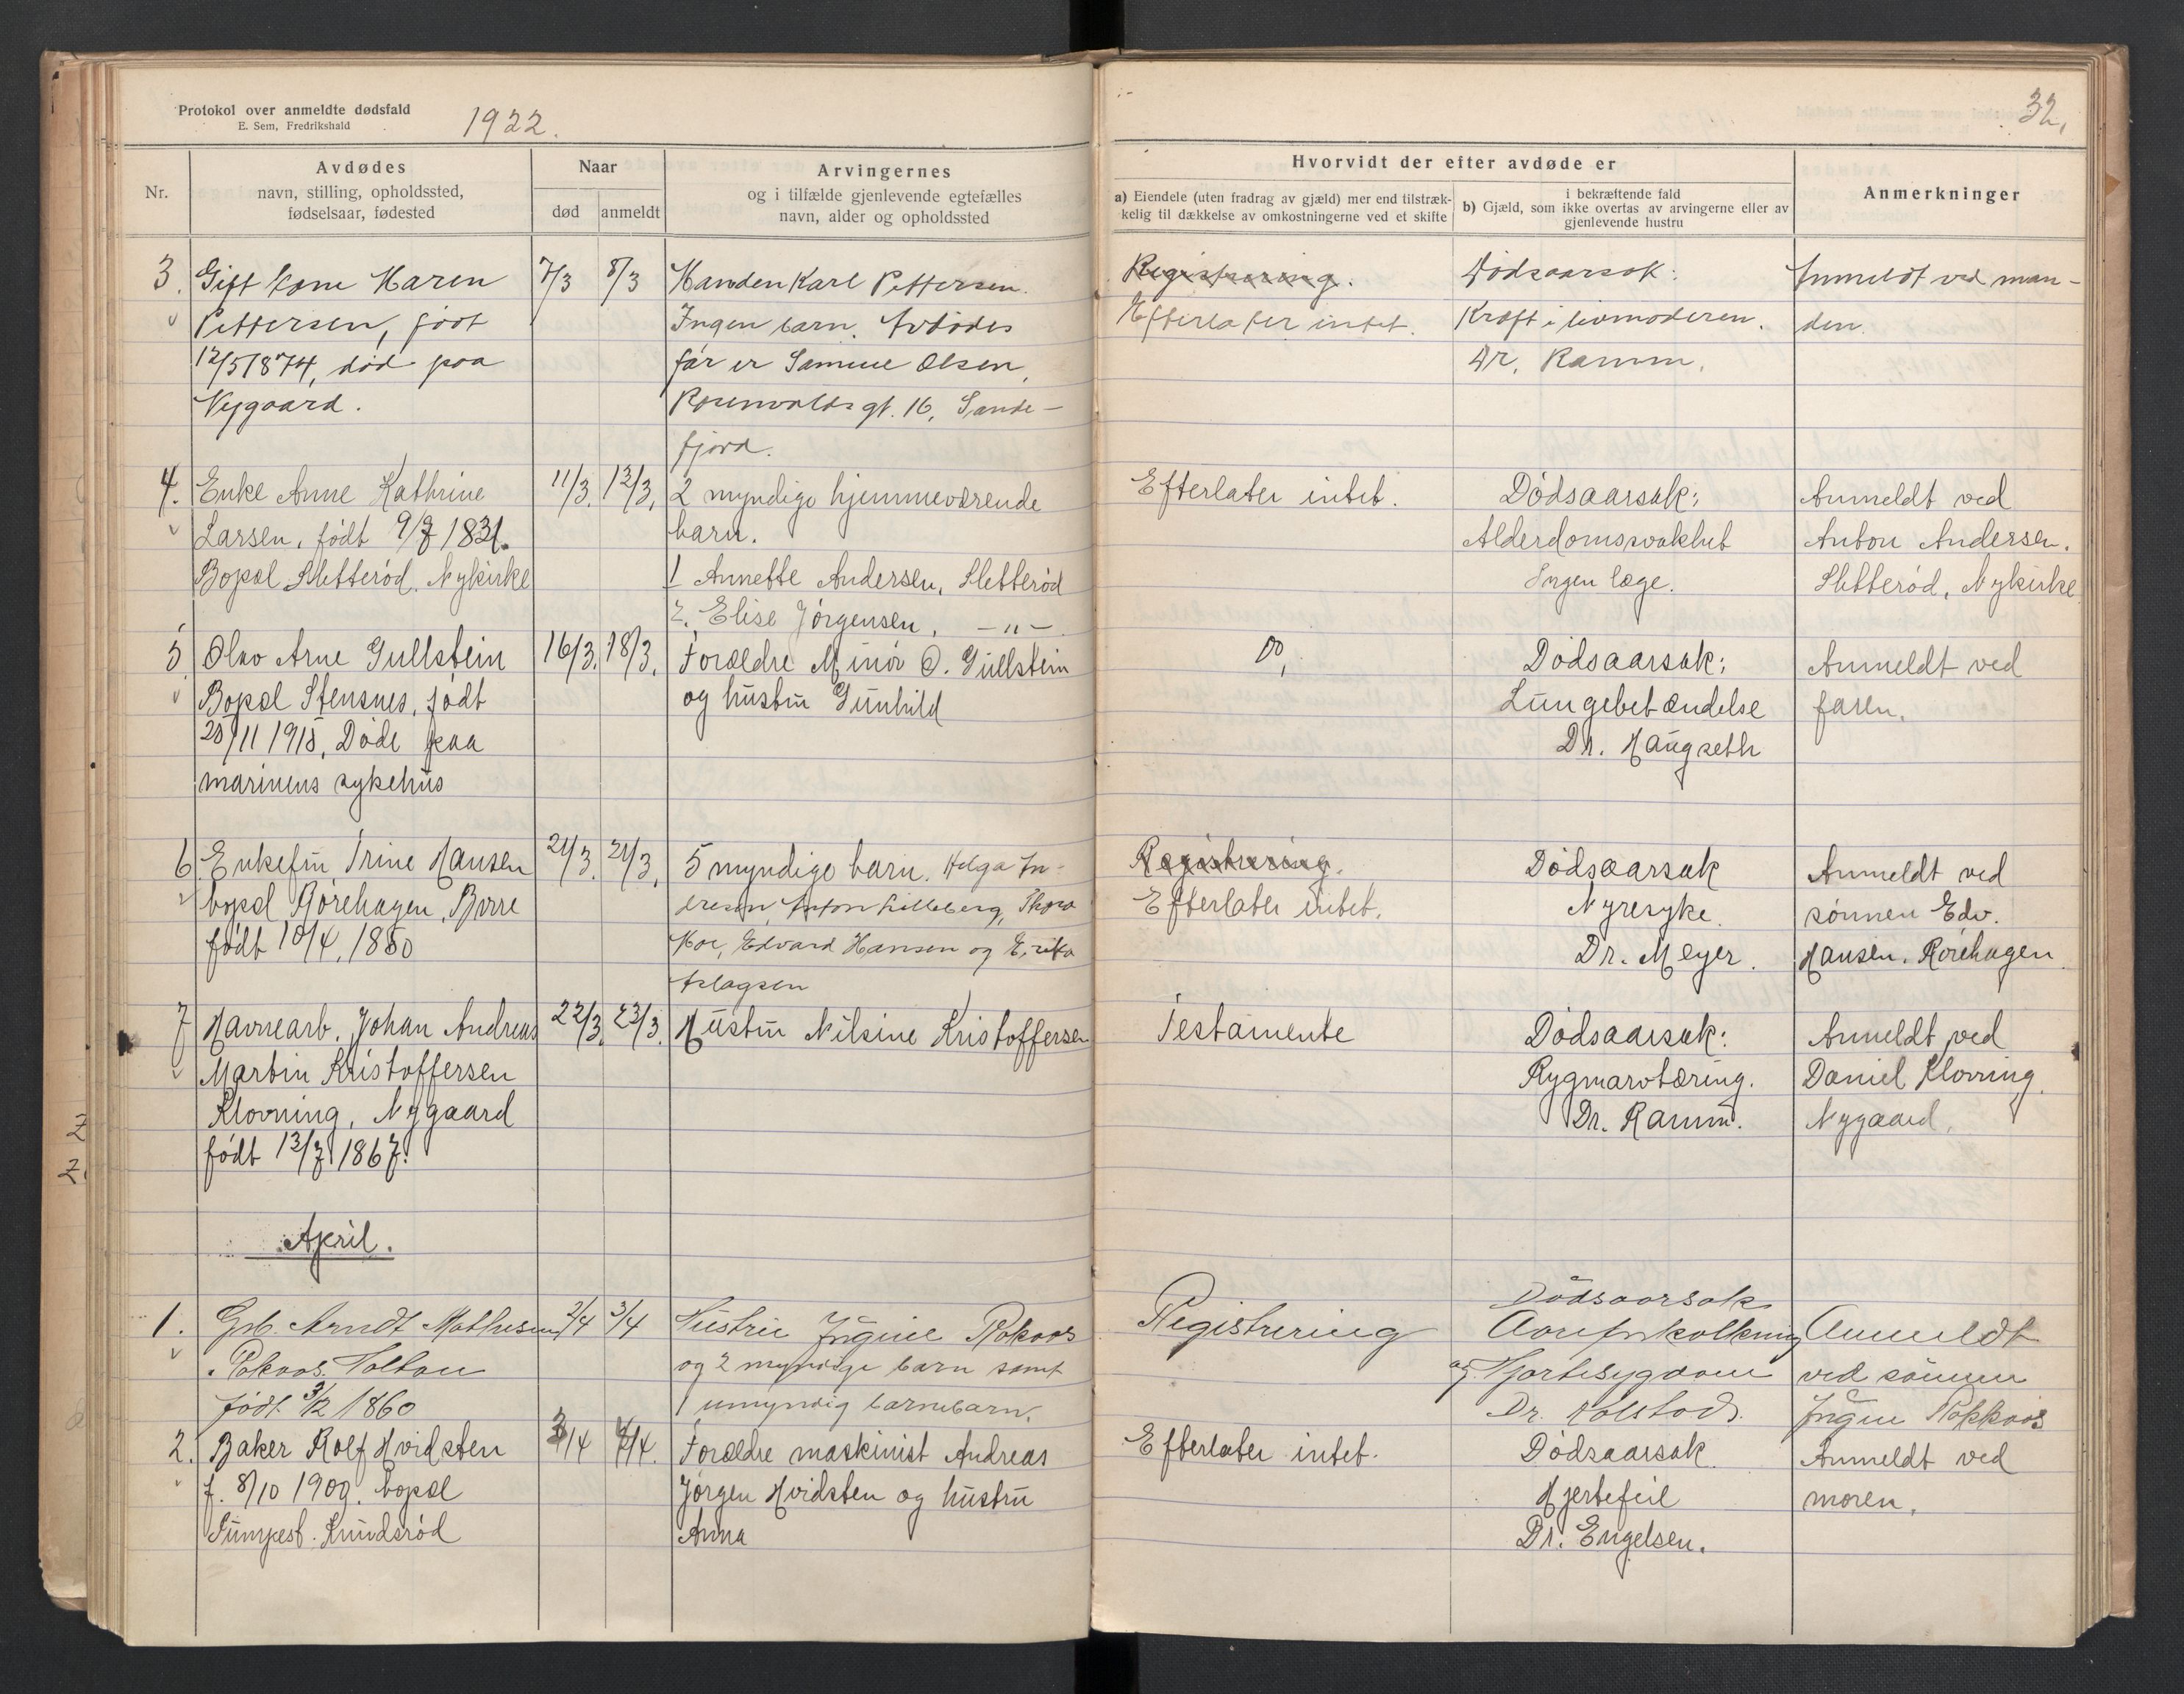 Protokol over anmeldte dødsfald
E. Sem, Fredrikshald
1922.
Nr.
Avdødes
navn, stilling, opholdssted,
fødselsaar, fødested
Naar
død
anmeldt
Arvingernes
og i tilfælde gjenlevende egtefælles
navn, alder og opholdssted
3.
Gift kone Maren
Pettersen, født
12/5 1874, død paa
Nygaard.
7/3
8/3
Manden Karl Pettersen.
Ingen barn. Avdødes
far er Samuel Olsen,
Rosenvolds gt. 16, Sande-
fjord.
4.
Enke Anne Kathrine
Larsen, født 9/7 1831.
Bopæl Sletterød, Nykirke
11/3.
12/3,
2 myndige hjemmeværende
barn.
1 Annette Andersen, Sletterød
2. Elise Jørgensen, -"-
5.
Olav Arne Gullstein
Bopæl Stensnes, født
/11 1915, Døde paa
marinens sykehus
16/3.
18/3,
Forældre Minør O. Gullstein
og hustru Gunhild
6.
Enkefru Trine Hansen
bopæl Rørehagen, Borre
født 10/4, 1850
21/3.
21/3,
5 myndige barn. Helga In-
dresen, Anton Lilleberg, Thora
Moe, Edvard Hansen og Erika
Aslagsen
7
Havnearb. Johan Andreas
Martin Kristoffersen
Klovning, Nygaard
født 13/7 1867.
22/3.
23/3.
Hustru Nilsine Kristoffersen
April.
1.
Grb. Arndt Mathisen
Rokoos. Solton
født 3/12 1860
2/4
3/4
Hustru Ingine Rokoos
og 2 myndige barn samt
1 umyndig barnebarn.
2.
Baker Rolf Hvidsten
f. 8/10 1900, bopæl
Knudsrød
3/4
4/4.
Forældre maskinist Andreas
Jørgen Hvidsten og hustru
Anna
32,
Hvorvidt der efter avdøde er
a) Eiendele (uten fradrag av gjæld) mer end tilstræk-
kelig til dækkelse av omkostningerne ved et skifte
i bekræftende fald
b) Gjæld, som ikke overtas av arvingerne eller av
gjenlevende hustru
Anmerkninger
Registrering.
Efterlater intet.
Dødsaarsak:
Kræft i livmoderen.
Dr. Ramm.
Anmeldt ved man-
den.
Efterlater intet.
Dødsaarsak:
Alderdomssvakhet
Ingen læge.
Anmeldt ved
Anton Andersen.
Sletterød, Nykirke
Do,
Dødsaarsak:
Lungebetændelse
Dr. Haugseth
Anmeldt ved
faren.
Registrering.
Efterlater intet.
Dødsaarsak
Nyresyke.
Dr. Meyer.
Anmeldt ved
sønnen Edv.
Hansen. Rørehagen
Testamente
Dødsaarsak:
Rygmarvtæring.
Dr. Ramm.
Anmeldt ved
Daniel Klovning
Nygaard.
Registrering
Dødsaarsak
Aareforkalkning
og Hjertesygdom
Dr. Kolstad.
Anmeldt
ved sønnen
Ingu Rokkoos
Efterlater intet.
Dødsaarsak
Hjertefeil
Dr. Engelsen.
Anmeldt ved
moren.